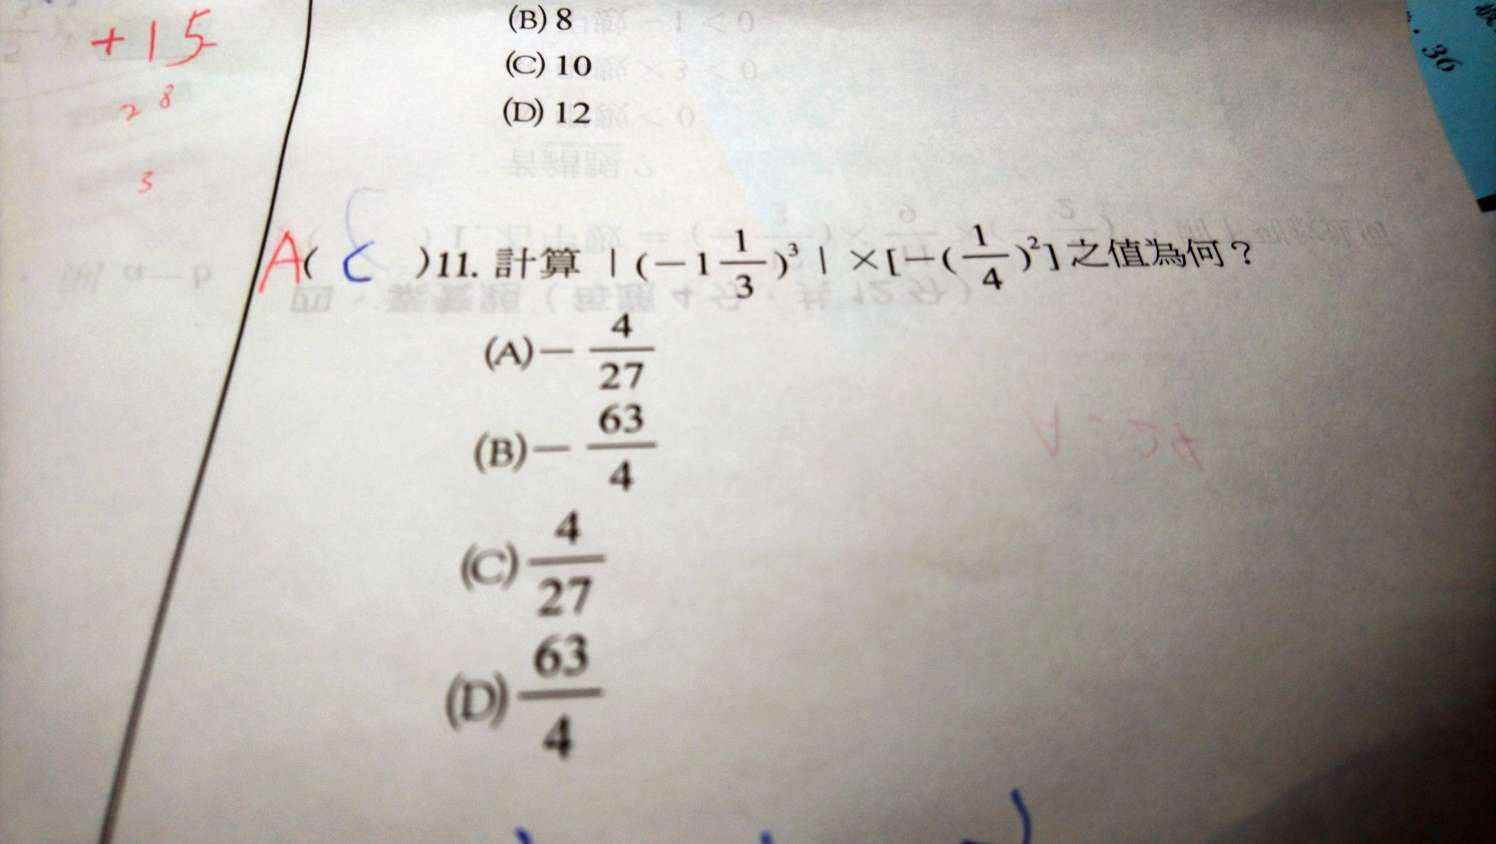 +15
28
3
36
(B) 8
(C) 10
(D) 12
A( C )11. 計算 | (－1 1/3)³ | ×[－(1/4)²] 之值為何？
(A)－ 4/27
(B)－ 63/4
(C) 4/27
(D) 63/4